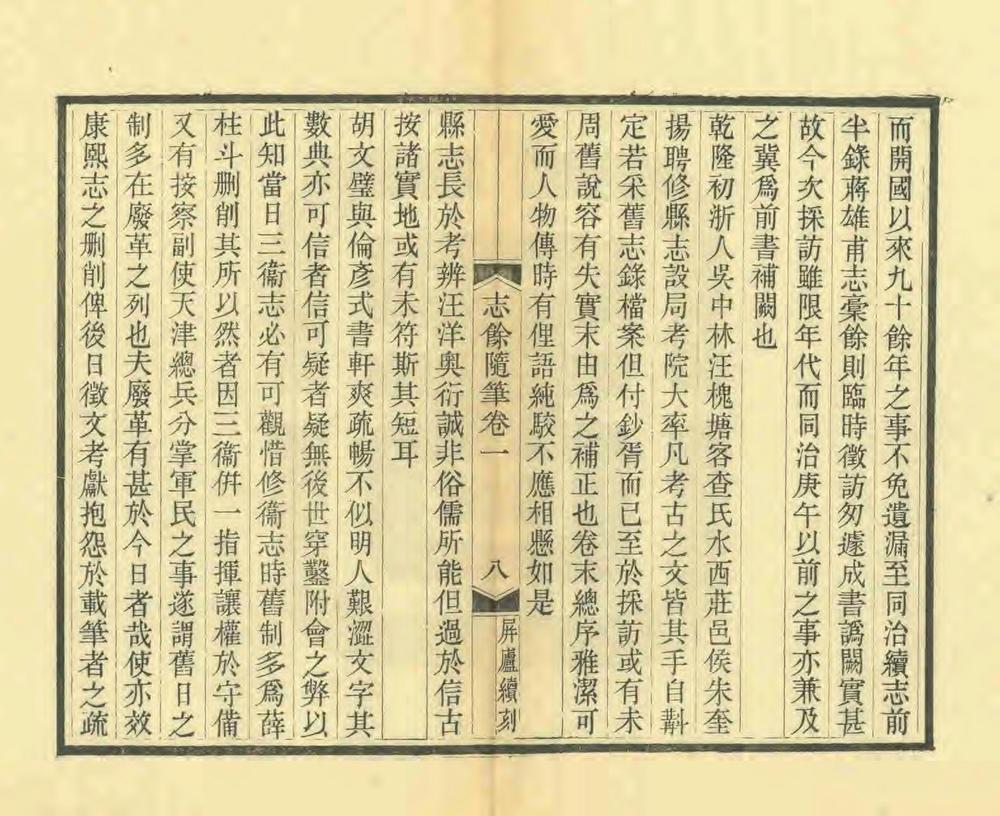 而開國以來九十餘年之事不免遺漏至同治續志前
半錄蔣雄甫志稾餘則臨時徵訪匆遽成書譌闕實甚
故今次採訪雖限年代而同治庚午以前之事亦兼及
之冀爲前書補闕也
乾隆初浙人吳中林汪槐塘客查氏水西莊邑侯朱奎
揚聘修縣志設局考院大率凡考古之文皆其手自斠
定若采舊志錄檔案但付鈔胥而已至於採訪或有未
周舊說容有失實末由爲之補正也卷末總序雅潔可
愛而人物傳時有俚語純駮不應相懸如是
志餘隨筆卷一
八
屏廬續刻
縣志長於考辨汪洋奧衍誠非俗儒所能但過於信古
按諸實地或有未符斯其短耳
胡文璧與倫彥式書軒爽疏暢不似明人艱澀文字其
數典亦可信者信可疑者疑無後世穿鑿附會之弊以
此知當日三衞志必有可觀惜修衞志時舊制多爲薛
柱斗删削其所以然者因三衞倂一指揮讓權於守備
又有按察副使天津總兵分掌軍民之事遂謂舊日之
制多在廢革之列也夫廢革有甚於今日者哉使亦效
康熙志之删削俾後日徵文考獻抱怨於載筆者之疏